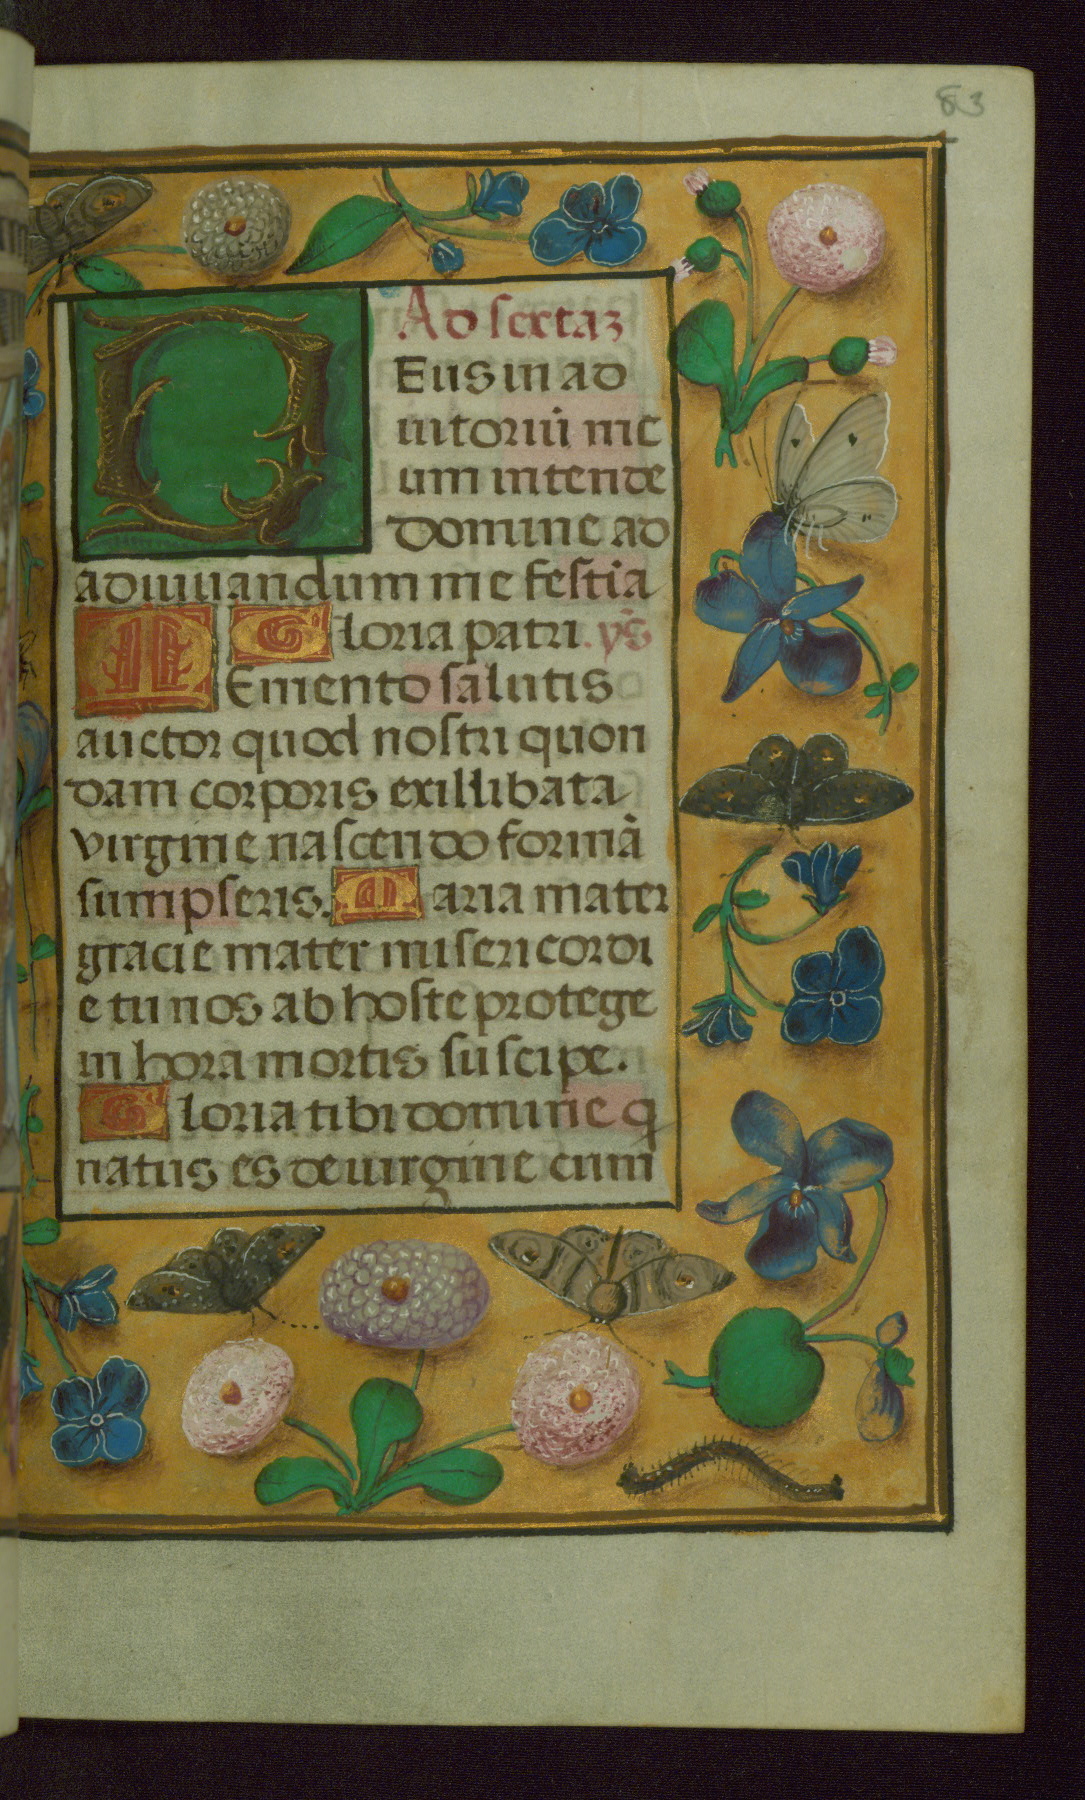 83
Ad sextaʒ
D Eus in ad
iutoriū me
um intende
domine ad
adiuuandum me festīa
Gloria patri. ȳs
Memento salutis
auctor quod nostri quon
dam corporis exillibata
virgine nascendo formā
sumpseris. Maria mater
gracie mater misericordi
e tu nos ab hoste protege
in hora mortis suscipe.
Gloria tibi domine q
natus es de uirgine cum